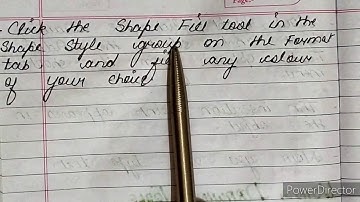 - Click the Shape Fill tool in the
Shape Style group on the Format
tab and any colour
of your choice
PowerDirector